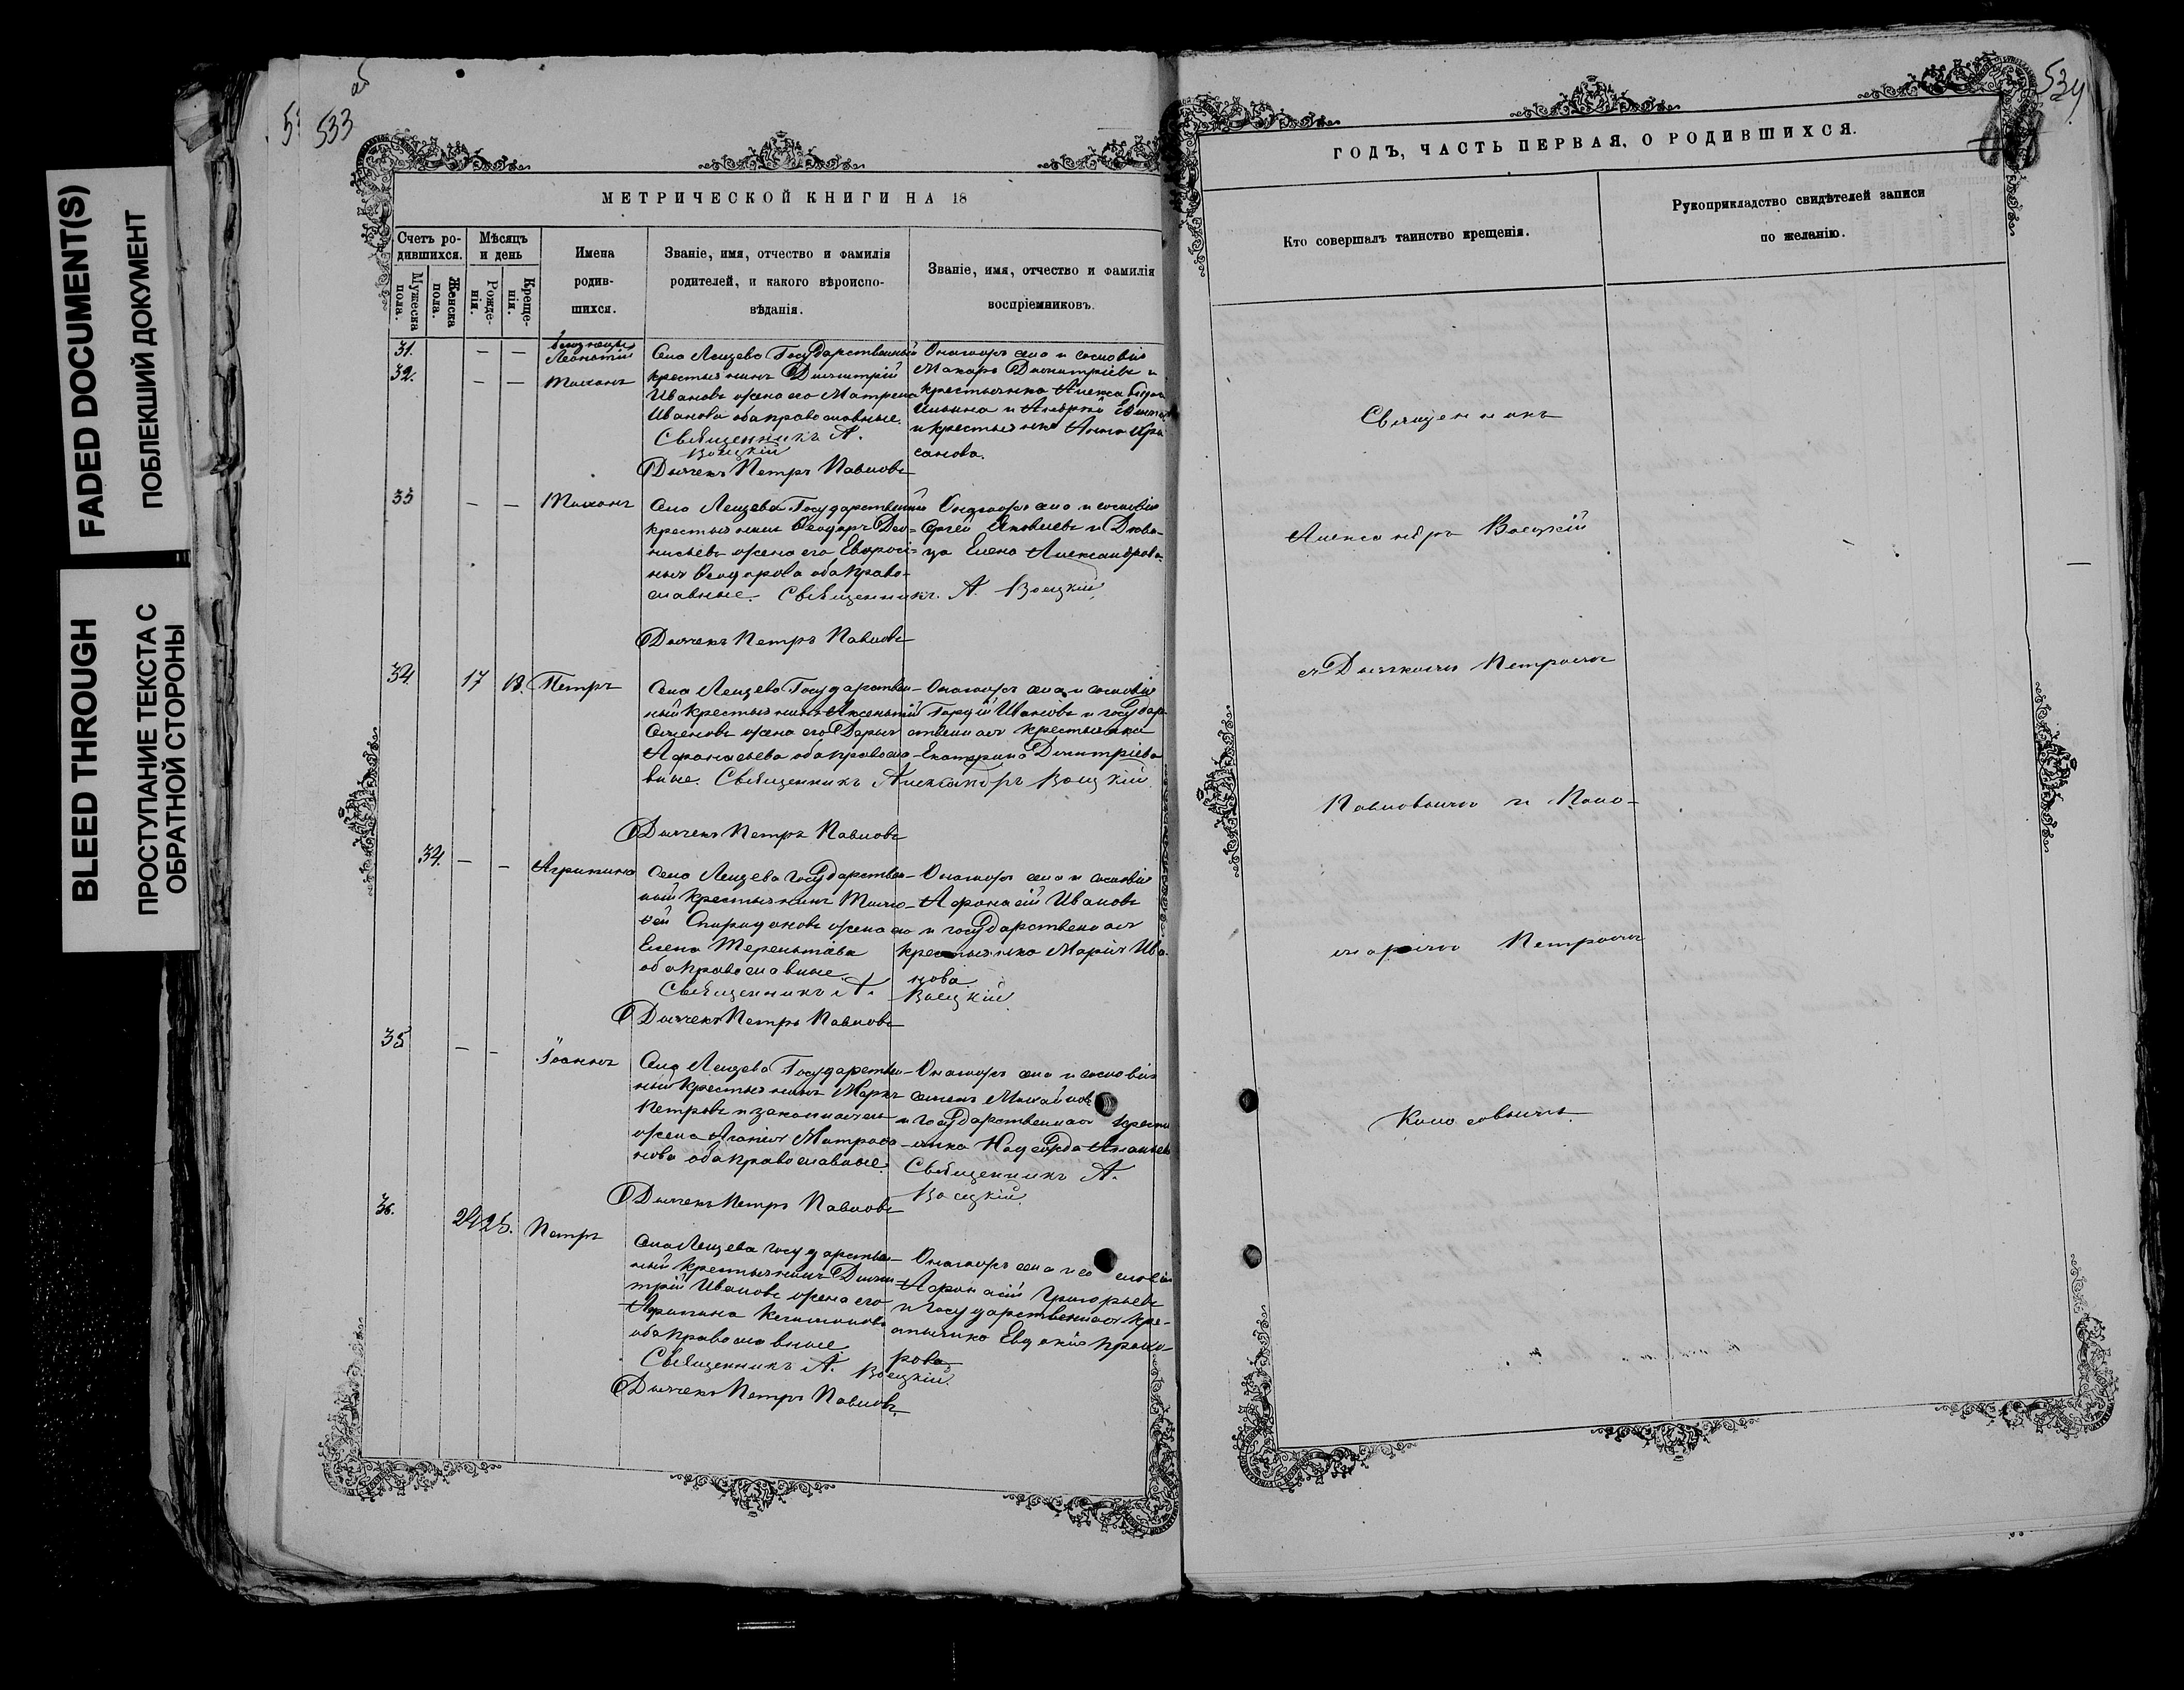 FADED DOCUMENT(S)
ПОБЛЕКШИЙ ДОКУМЕНТ
BLEED THROUGH
ПРОСТУПАНИЕ ТЕКСТА С
ОБРАТНОЙ СТОРОНЫ
об
533
МЕТРИЧЕСКОЙ КНИГИ НА 18
Счетъ ро-
дившихся.
Мужеска
пола.
Женска
пола.
Мѣсяцъ
и день
Рожде-
нія.
Креще-
нія.
Имена
родив-
шихся.
Званіе, имя, отчество и фамилія
родителей, и какого вѣроиспо-
вѣданія.
Званіе, имя, отчество и фамилія
воспріемниковъ.
31. — — близнецы
Леонтій
32. — — Тихонъ
Села Лещева Государственный
крестьянинъ Димитрій
Ивановъ жена его Матрена
Иванова оба православные.
Священникъ А.
Воецкій
Дьячекъ Петръ Павловъ
Онагожъ села и сословія
Макаръ Димитріевъ и
крестьянка Александра
Ильина и Андрей
и крестьянка Анна
санова.
33 — — Тихонъ
Села Лещева Государственный
крестьянинъ Ѳеодоръ Діо-
нисьевъ жена его Евфроси-
нья Ѳеодорова оба право-
славные. Священникъ А. Воецкій
Дьячекъ Петръ Павловъ
Онагожъ села и сословія
Сергѣй Яковлевъ и Дѣви-
ца Елена Александрова
34. 17 18. Петръ
Села Лещева Государствен-
ный крестьянинъ Аксентій
Семеновъ жена его Дарья
Афонасьева оба правосла-
вные. Священникъ Александръ Воецкій
Дьячекъ Петръ Павловъ
Онагожъ села и сословія
Гордѣй Ивановъ и государ-
ственная крестьянка
Екатерина Димитріева
34 — — Агрипина
Села Лещева государствен-
ный крестьянинъ Тимо-
ѳей Спиридоновъ жена его
Елена Терентьева
оба православные
Священникъ А. Воецкій
Дьячекъ Петръ Павловъ
Онагожъ села и сословія
Афонасій Ивановъ
и государственная
крестьянка Марія Ива-
нова
35 — — Іоаннъ
Села Лещева Государствен-
ный крестьянинъ Маркъ
Петровъ и законная его
жена Агафія Митрофа-
нова оба православные.
Дьячекъ Петръ Павловъ
Онагожъ села и сословія
Семенъ Михайловъ
и государственная крестья-
янка Надежда Ананьева
Священникъ А.
Воецкій
36. 24 25. Петръ
Села Лещева государствен-
ный крестьянинъ Дими-
трій Ивановъ жена его
Агрипина
оба православные
Священникъ А. Воецкій
Дьячекъ Петръ Павловъ.
Онагожъ села и сословія
Афонасій Григорьевъ
и Государственная кре-
стьянка Евдокія Прохо-
рова
534
ГОДЪ, ЧАСТЬ ПЕРВАЯ, О РОДИВШИХСЯ.
Кто совершалъ таинство крещенія.
Рукоприкладство свидѣтелей записи
по желанію.
Священникъ
Александръ Воецкій
съ Дьячкомъ Петромъ
Павловымъ и Поно-
маремъ Петромъ